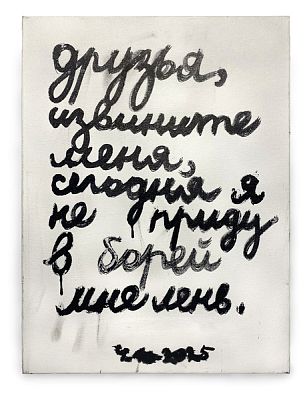 друзья,
извините
меня,
сегодня я
не приду
в борей
мне лень.
2025